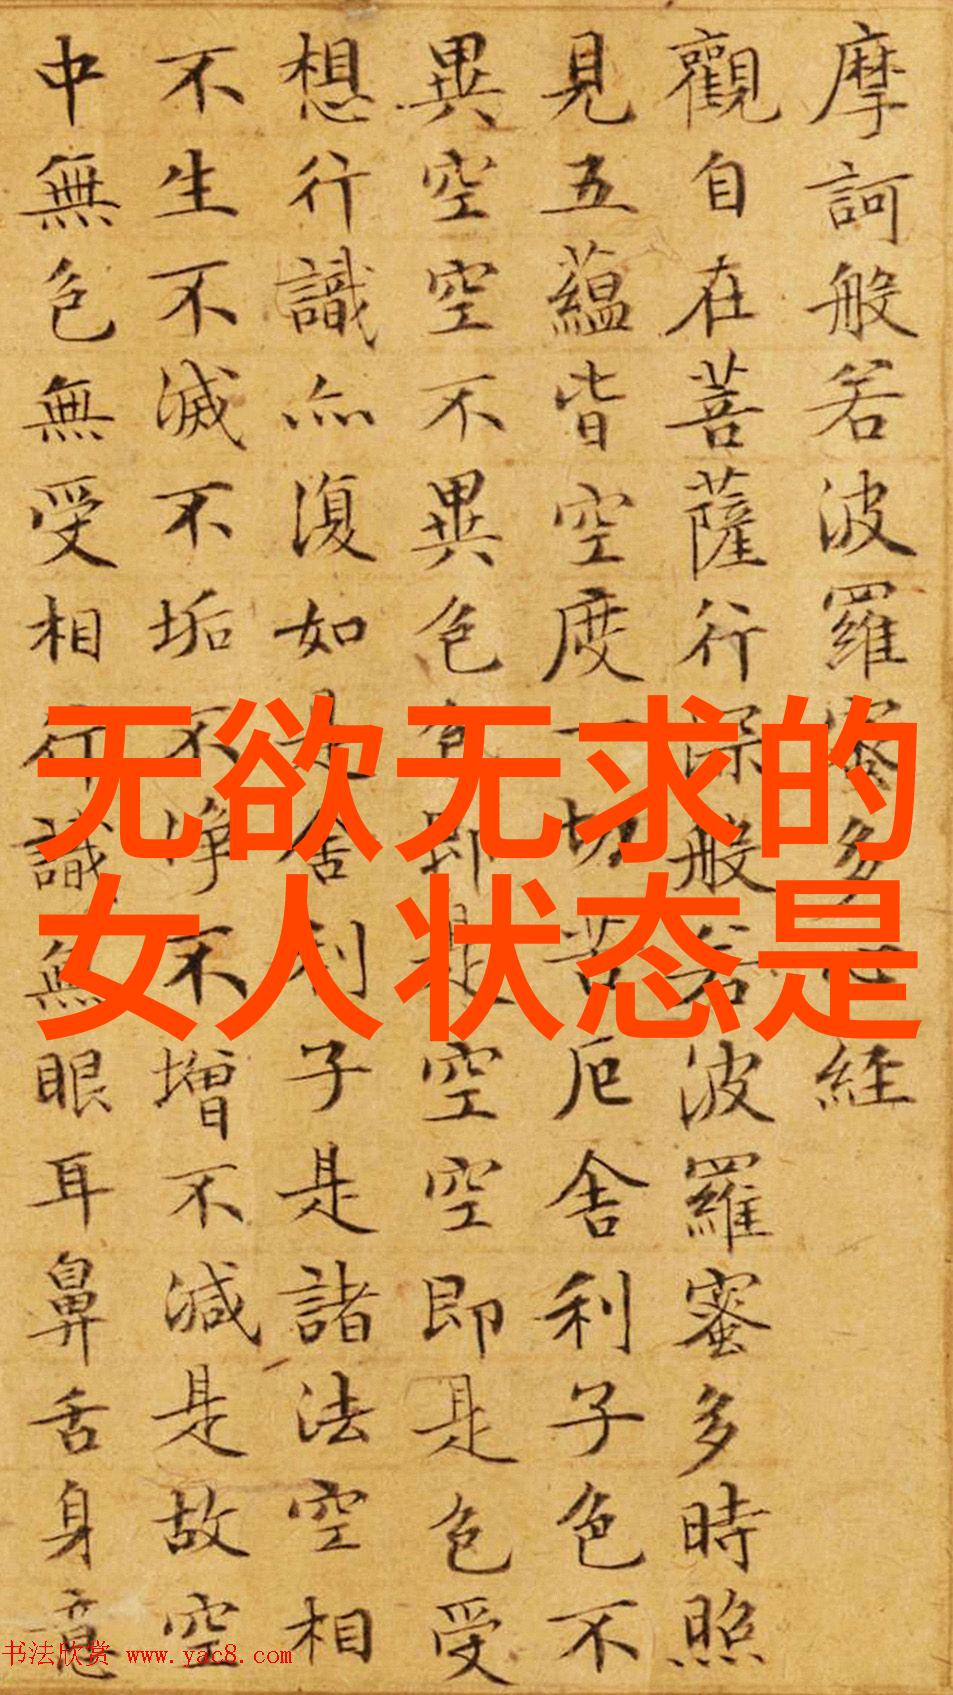 摩訶般若波羅蜜多心經
觀自在菩薩行深般若波羅蜜多時照
見五蘊皆空度一切苦厄舍利子色不
異空空不異色色即是空空即是色受
想行識亦復如是舍利子是諸法空相
不生不滅不垢不淨不增不減是故空
中無色無受相行識無眼耳鼻舌身意
无欲无求的
女人状态是
书法欣赏 www.yac8.com